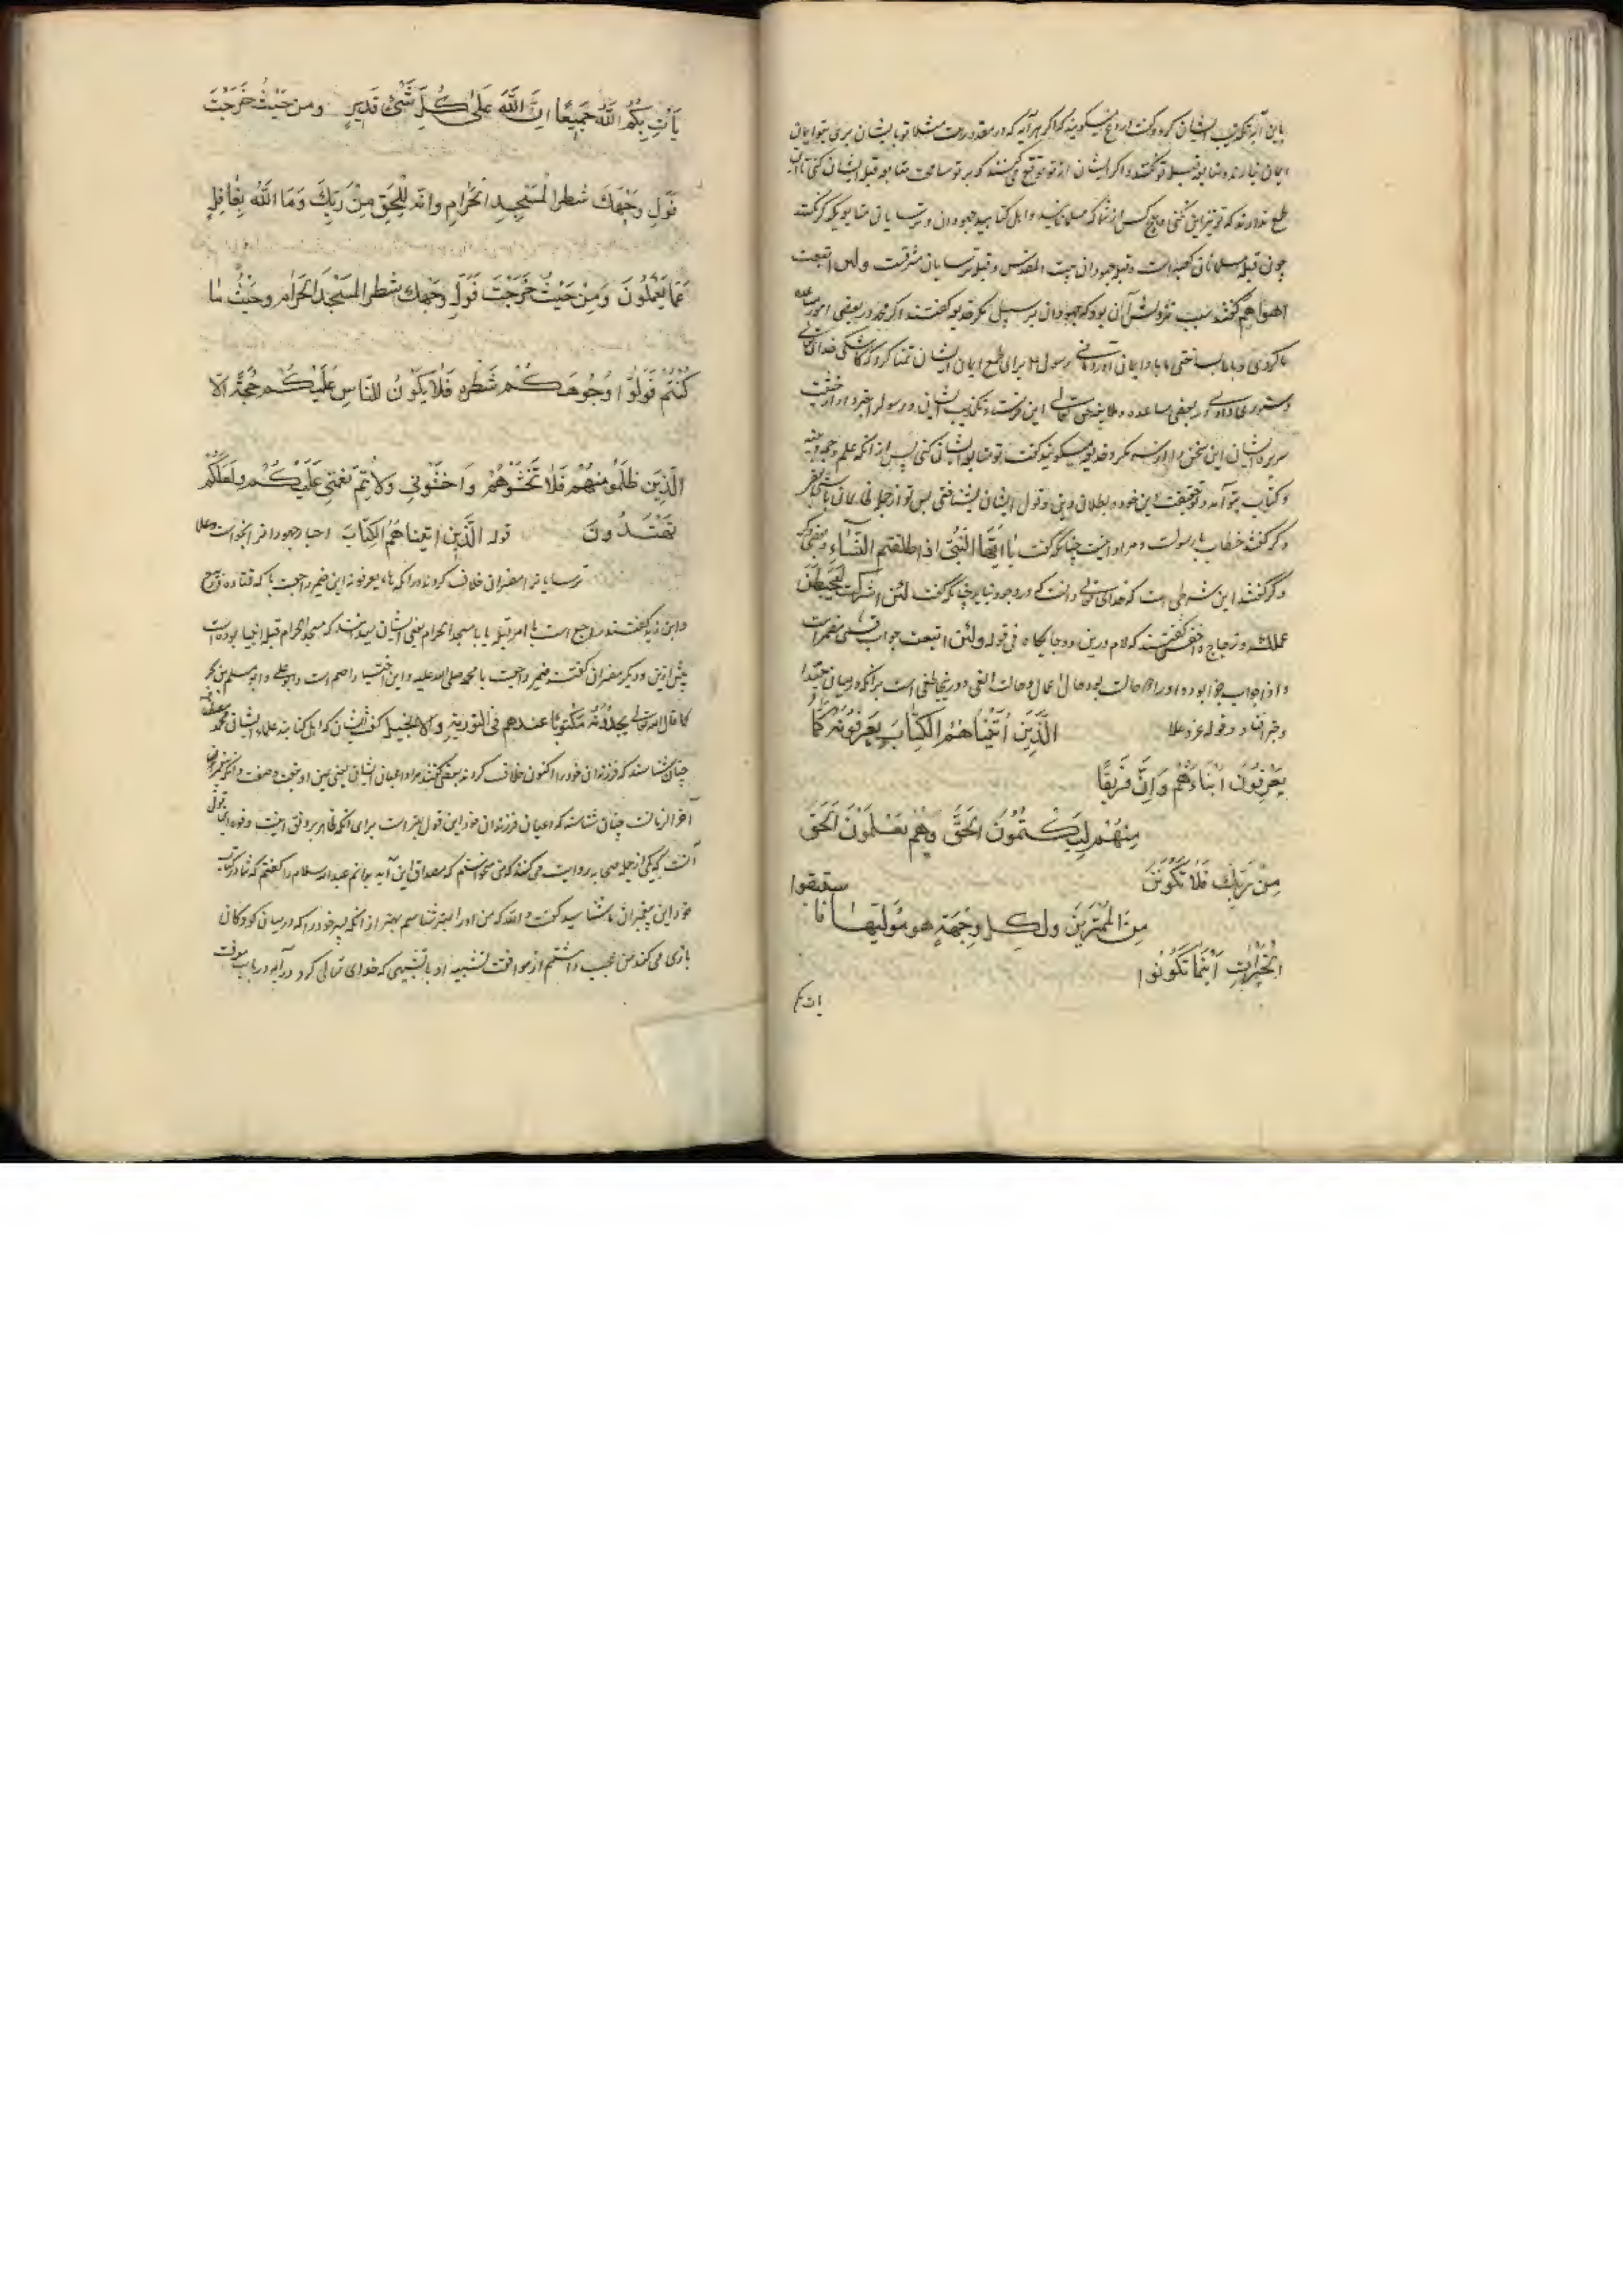 باین آیه تکذیب ایشان کرد و گفت دروغ میکویند که اگر هر آیه که در مقدور ماست مثلا تو بایشان بری بتو ایمان
ایمان نیارند و متابعت قبله تو نکنند و اگر ایشان از تو توقع کنند که بر تو مسامحت متابعه قبله ایشان کنی تا
طمع ندارند که تو نیز این نکنی و هیچ کس از شما که مسلمانانید و اهل کتابید جهودان و ترسایان متابع یکدیگر نکنند
چون قبله مسلمانان کعبه است و قبله جهودان بیت المقدس و قبله ترسایان مشرقست ولئن اتبعت
اهواهم گفتند سبب نزولش آن بود که جهودان بر سبیل مکر و خدیعه گفتند اگر محمد در بعضی امور
ما کردی و با ما بساختی ما با او ایمان آوردمانی رسول ۴ برای طمع ایمان ایشان تمنا کرد که کاشکی خدای تعالی
دستوری دادی در بعضی مساعده و ملاینه حق تعالی این فرستاد و تکذیب ایشان و رسول را خبر داد از خبث
سریره ایشان این سخن از سر مکر و خدیعه میکویند گفت تو متابعه ایشان کنی پس از آنکه علم و حجه و بینه
و کتاب بتو آمد و حقیقت دین خود و بطلان دین و قول ایشان بشناختی پس تو از جمله ظالمان باشی بعضی
دیگر گفتند خطاب با رسولست و مراد امت چنانکه گفت یا ایها النبی اذا طلقتم النساء و بعضی
دیگر گفتند این شرطی است که خدای تعالی دانست که در وجود نیاید چنانکه گفت لئن اشرکت لیحبطن
عملک و زجاج و اخفش گفتند که لام درین دو جایگاه فی قوله ولئن اتیت ولئن اتبعت جواب قسمی مضمر است
و اذا جواب جزا بود و او را سه حالت بود حال اعمال و حالت الغی و دور نجا ملغی است برای آنکه در میان مبتدا
و خبر افتاد و قوله عز و علا الَّذِينَ آتَيْنَاهُمُ الْكِتَابَ يَعْرِفُونَهُ كَمَا
يَعْرِفُونَ أَبْنَاءَهُمْ وَإِنَّ فَرِيقًا
مِنْهُمْ لَيَكْتُمُونَ الْحَقَّ وَهُمْ يَعْلَمُونَ الْحَقُّ
مِنْ رَبِّكَ فَلَا تَكُونَنَّ
مِنَ الْمُمْتَرِينَ وَلِكُلٍّ وِجْهَةٌ هُوَ مُوَلِّيهَا فَاسْتَبِقُوا
الْخَيْرَاتِ أَيْنَمَا تَكُونُوا
یات بکم
يَأْتِ بِكُمُ اللَّهُ جَمِيعًا إِنَّ اللَّهَ عَلَىٰ كُلِّ شَيْءٍ قَدِيرٌ وَمِنْ حَيْثُ خَرَجْتَ
فَوَلِّ وَجْهَكَ شَطْرَ الْمَسْجِدِ الْحَرَامِ وَإِنَّهُ لَلْحَقُّ مِنْ رَبِّكَ وَمَا اللَّهُ بِغَافِلٍ
عَمَّا يَعْمَلُونَ وَمِنْ حَيْثُ خَرَجْتَ فَوَلِّ وَجْهَكَ شَطْرَ الْمَسْجِدِ الْحَرَامِ وَحَيْثُ مَا
كُنْتُمْ فَوَلُّوا وُجُوهَكُمْ شَطْرَهُ فَلَا يَكُونُ لِلنَّاسِ عَلَيْكُمْ حُجَّةٌ إِلَّا
الَّذِينَ ظَلَمُوا مِنْهُمْ فَلَا تَخْشَوْهُمْ وَاخْشَوْنِي وَلِأُتِمَّ نِعْمَتِي عَلَيْكُمْ وَلَعَلَّكُمْ
تَهْتَدُونَ قوله الَّذِينَ آتَيْنَاهُمُ الْكِتَابَ احبار جهودانرا خواست و علما
ترسایانرا مفسران خلاف کردند در آنکه ها یعرفونه این ضمیر راجعست با که قتاده و ربیع
و ابن زید گفتند راجع است با امر قبله یا با مسجد الحرام یعنی ایشان میدانند که مسجد الحرام قبله انبیا بوده است
پیش ازین و دیگر مفسران گفتند ضمیر راجعست با محمد صلی الله علیه و این اختیار اصم است و ابو علی و ابو مسلم بن بحر
کما قال الله تعالی یجدونه مکتوبا عندهم فی التوریة والانجیل گفت ایشان که اهل کتابند علماء ایشان محمد
چنان شناسند که فرزندان خود را اکنون خلاف کردند بعضی گفتند مراد اعیان ایشان یعنی عین او و نعت و صفت و آنکه پیغمبر
آخر الزمانست چنان شناسند که اعیان فرزندان خود این قول بهتر است برای آنکه ظاهر بر وفق اینست و قوله
آنست که یکی از جمله صحابه روایت می کند که من میخواستم که مصداق این آیه بدانم عبد الله سلام را گفتم که شما در کتاب
خود این پیغمبر را می شناسید گفت و الله که من او را بهتر شناسم بهتر از آنکه پسر خود را که در میان کودکان
بازی می کند من عجب داشتم از موافقت تشبیه او با تشبیهی که خدای تعالی کرد در آیه در باب معرفت